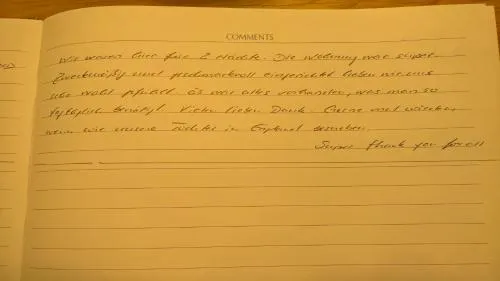 COMMENTS
Wir waren hier für 2 Nächte. Die Wohnung war super.
Zweckmäßig und geschmackvoll eingerichtet haben wir uns
sehr wohl gefühlt. Es war alles vorhanden, was man so
tagtäglich benötigt. Vielen lieben Dank. Gerne mal wieder,
wenn wir unsere Töchter in England besuchen.
Super thank you for all